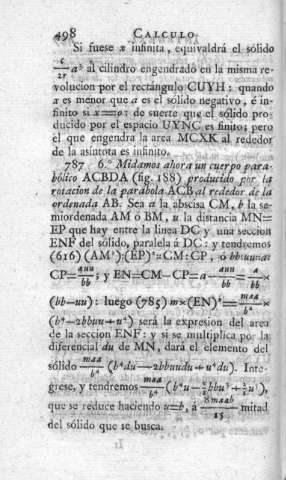 498 CALCULO.
Si fuese x infinita, equivaldrá el sólido
c/2r a³ al cilindro engendrado en la misma re-
volucion por el rectángulo CUYH: quando
x es menor que a es el sólido negativo, é in-
finito si x=o: de suerte que el sólido pro-
ducido por el espacio UYNC es finito; pero
el que engendra la area MCXK al rededor
de la asíntota es infinito.
787 6.º Midamos ahora un cuerpo para-
bólico ACBDA (fig. 188) producido por la
rotacion de la parábola ACB al rededor de la
ordenada AB. Sea a la abscisa CM, b la se-
miordenada AM ó BM, u la distancia MN=
EP que hay entre la linea DC y una seccion
ENF del sólido, paralela á DC: y tendremos
(616) (AM²):(EP)²=CM:CP, ó bb:uu::a:
CP=auu/bb; y EN=CM–CP=a–auu/bb=a/bb×
(bb–uu): luego (785) m×(EN)²=maa/b⁴×
(b⁴–2bbuu+u⁴) será la expresion del area
de la seccion ENF: y si se multiplica por la
diferencial du de MN, dará el elemento del
sólido maa/b⁴ (b⁴du–2bbuudu+u⁴du). Inte-
grese, y tendremos maa/b⁴ (b⁴u–⅔bbu³+⅕u⁵),
que se reduce haciendo u=b, á 8maab/15 mitad
del sólido que se busca.